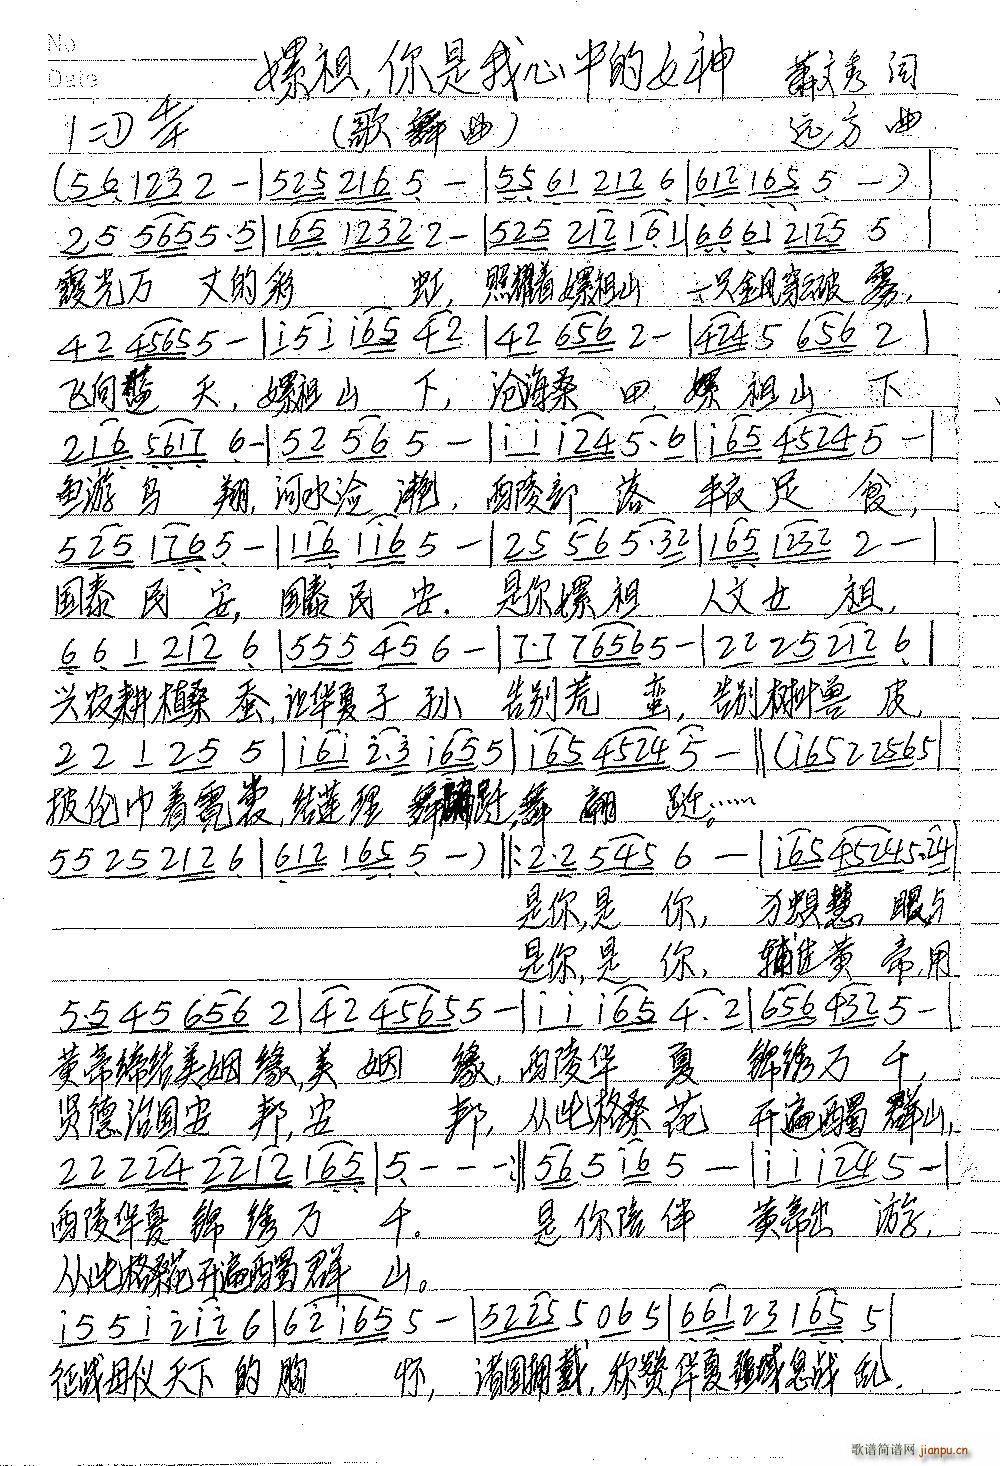 No
Date
嫘祖,你是我心中的女神 萧文秀 词
1=D 4/4 (歌舞曲) 远方 曲
(561232-|5252165-|5561212 6|6121655-)|
255655·5|16512322-|525212161|666121255|
霞光万 丈的彩 虹, 照耀着嫘祖山 一只金凤穿破 雾,
4245655-|i5ii6542|426562-|42456562|
飞向蓝 天, 嫘祖山 下, 沧海桑 田, 嫘祖山 下
21656176-|52565-|iii245·6|i6545245-|
鱼游鸟 翔, 河水沧 滟, 西陵部 落 丰衣足 食,
5251765-|1161165-|25565·32|16512322-|
国泰民 安, 国泰民 安. 是你嫘祖 人文女 祖,
6612126|555456-|7·7765655-|222·52126|
兴农耕植桑 蚕, 让华夏子 孙 告别荒 蛮, 告别树叶兽 皮,
221255|i6i2·3i655|i6545245-‖(i65225651
披伦巾着霓裳, 结莲理 舞翩跹,舞 翩 跹……
55252126|6121655-)‖:2·25456-|i6545245·24|
是你,是 你, 眼与
是你,是 你, 辅佐黄 帝,用
5·5456562|42456555-|iii654·2|6564325-|
黄帝缔结美姻缘,美 姻 缘, 西陵华 夏 锦绣万 千,
贤德治国安 邦,安 邦, 从此格桑 花 开遍西蜀 群山,
222242212165|5---:‖565i65-|iiii245-|
西陵华夏 锦绣万 千。 是你陪伴 黄帝出 游,
从此格桑花开遍西蜀群 山。
i55i2i26|62i655-|52255065|661231655|
征战母仪天下 的胸 怀, 诸国拥戴, 你赞,华夏疆域息战 乱.
歌谱简谱网 jianpu.cn